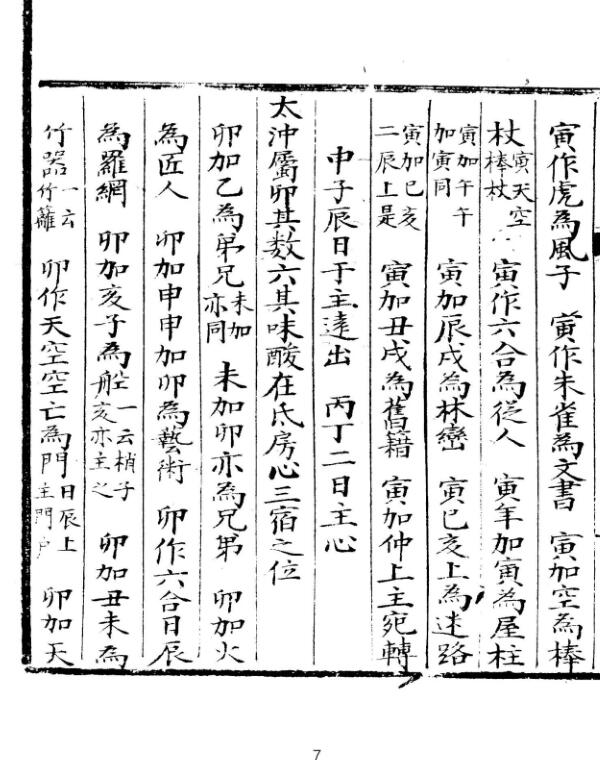 寅作虎為風子　寅作朱雀為文書　寅加空為棒
杖寅天空棒杖　寅作六合為從人　寅年加寅為屋柱
寅加午午加寅同　寅加辰戌為林巒　寅巳亥上為迷路
寅加巳亥二辰上是　寅加丑戌為舊籍　寅加仲上主宛轉
申子辰日于主遠出　丙丁二日主心
太沖屬卯其数六其味酸在氐房心三宿之位
卯加乙為弟兄未加亦同　未加卯亦為兄弟　卯加火
為匠人　卯加申申加卯為藝術　卯作六合日辰
為羅網　卯加亥子為船一云梢子亥亦主之　卯加丑未為
竹器一云竹籬　卯作天空空亡為門日辰上主門户　卯加天
7